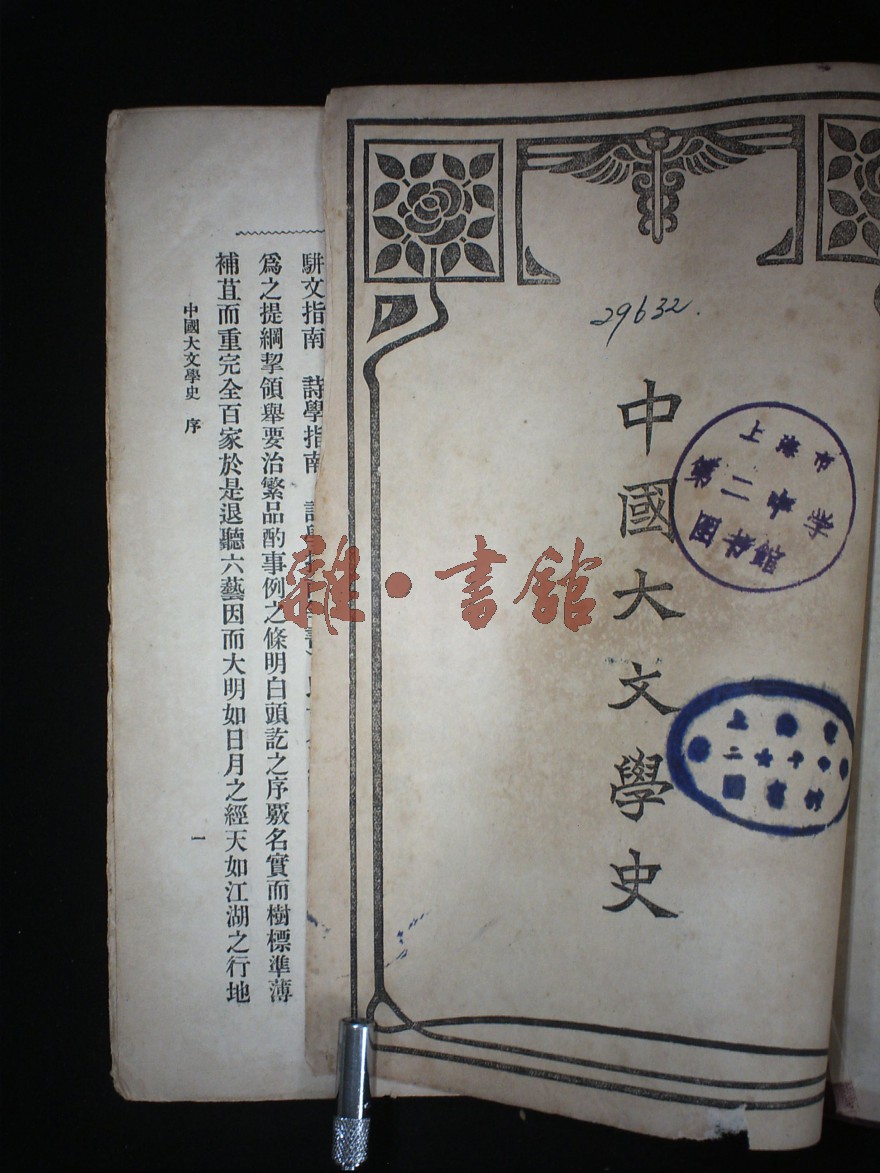 29632.
中國大文學史
上海市
第二中学
圖書館
上海
二
圖書館
雜·書館
駢文指南 詩學指南
為之提綱挈領舉要治繁品酌事例之條明白頭訖之序覈名實而樹標準薄
補苴而重完全百家於是退聽六藝因而大明如日月之經天如江湖之行地
中國大文學史 序
一